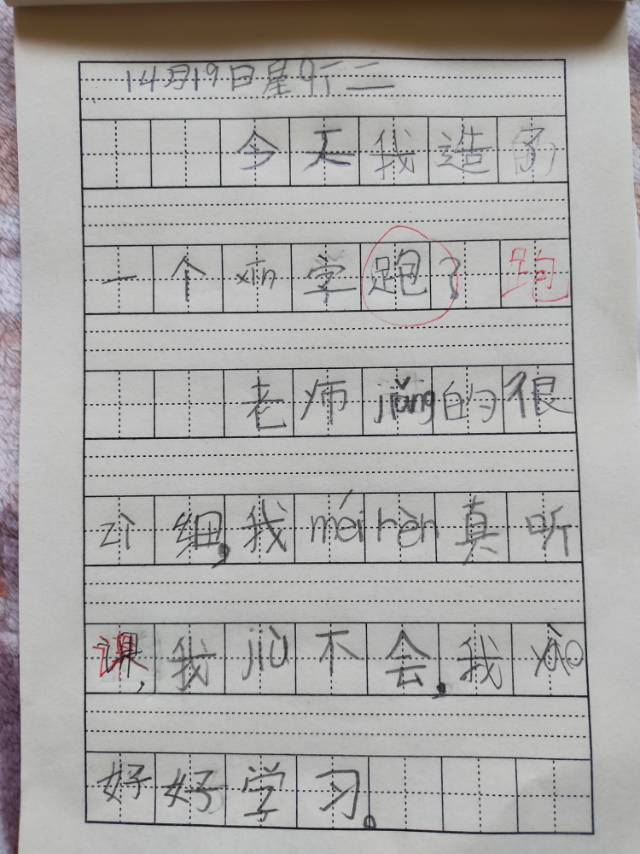 14月19日星期二
今天我造了
一个xīn字跑? 跑
老师jiǎng的很
仔细,我méi rèn真听
课,我jiù不会,我yào
好好学习。